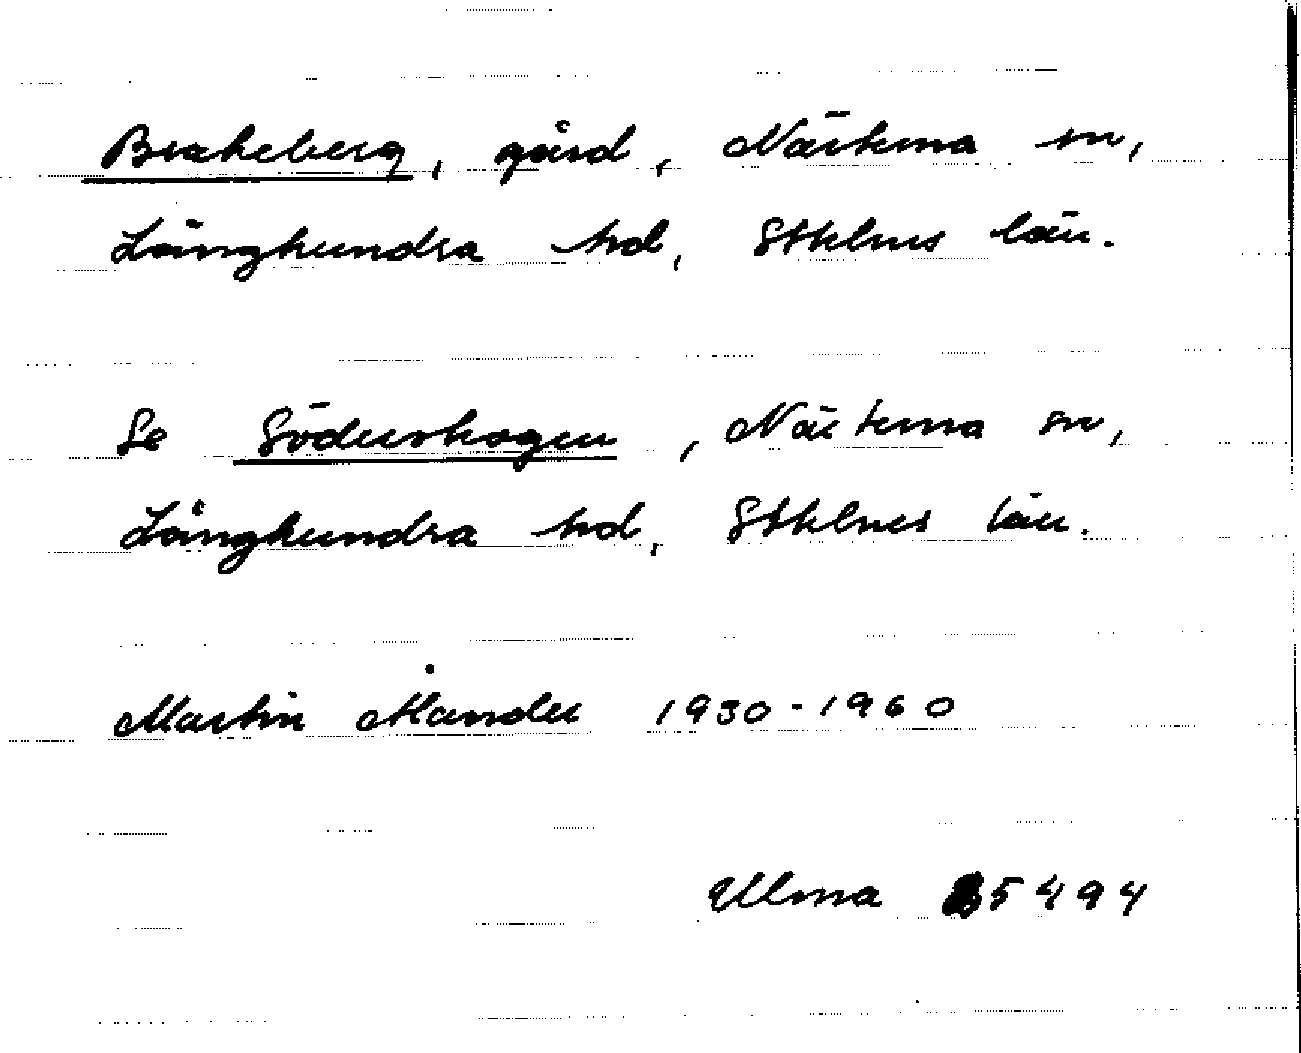 Brakeberg, gård, Närtuna sn,
Långhundra hd, Sthlms län.
Se Söderskogen, Närtuna sn,
Långhundra hd, Sthlms län.
Martin Mander 1930-1960
Ulma 25494